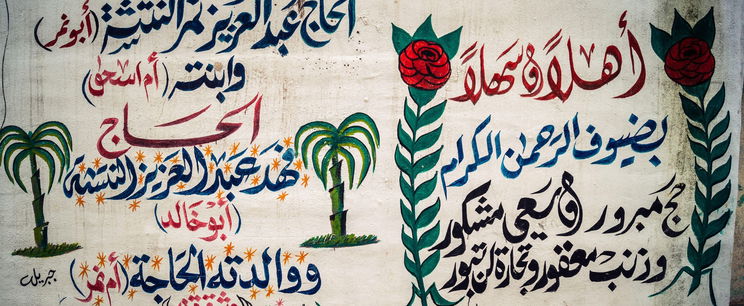 أهلاً وسهلاً
بضيوف الرحمن الكرام
حج مبرور وسعي مشكور
وذنب مغفور وتجارة لن تبور
الحاج عبد العزيز نمر النتشة (أبو نمر)
وابنته (أم اسحق)
الحاج
فهد عبد العزيز النتشة
(أبو خالد)
ووالدته الحاجة (أم نمر)
جبريل